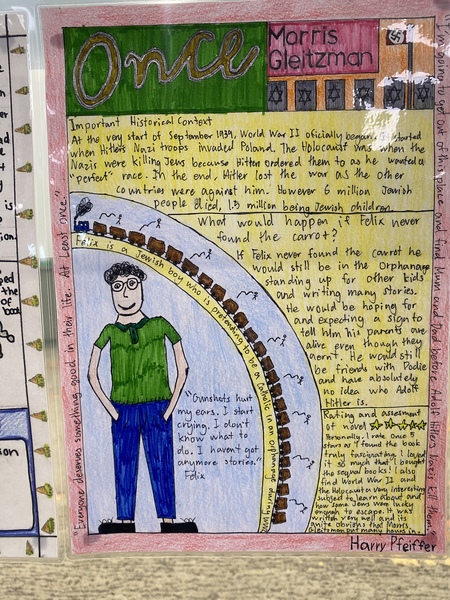 Once
Morris
Gleitzman
Important Historical Context
At the very start of September 1939, World War II oficially began. It started
when Hitlers Nazi troops invaded Poland. The Holocaust was when the
Nazis were killing Jews because Hitler ordered them to as he wanted a
"perfect" race. In the end, Hitler lost the war as the other
countries were against him. However 6 million Jewish
people died, 1.5 million being Jewish children.
What would happen if Felix never
found the carrot?
If Felix never found the carrot he
would still be in the Orphanage
standing up for other kids
and writing many stories.
He would be hoping for
and expecting a sign to
tell him his parents are
alive even though they
aren't. He would still
be friends with Dodie
and have absolutely
no idea who Adolf
Hitler is.
Felix is a Jewish boy who is pretending to be a Catholic in an orphanage during
"Gunshots hurt
my ears. I start
crying. I don't
know what to
do. I haven't got
anymore stories."
Felix
Rating and assesment
of novel
Personally, I rate Once 5
stars as I found the book
truly fascinating! I loved
it so much that I bought
the sequal books! I also
find World War II and
the Holocaust a very interesting
subject to learn about and
how some Jews were lucky
enough to escape. It was
written very well and its
quite obvious that Morris
Gleitzman put many hours in
"Everyone deserves something good in their life. At least once."
"I'm going to get out of this place and find Mum and Dad before Adolf Hitler's Nazis kill them
Harry Pfeiffer